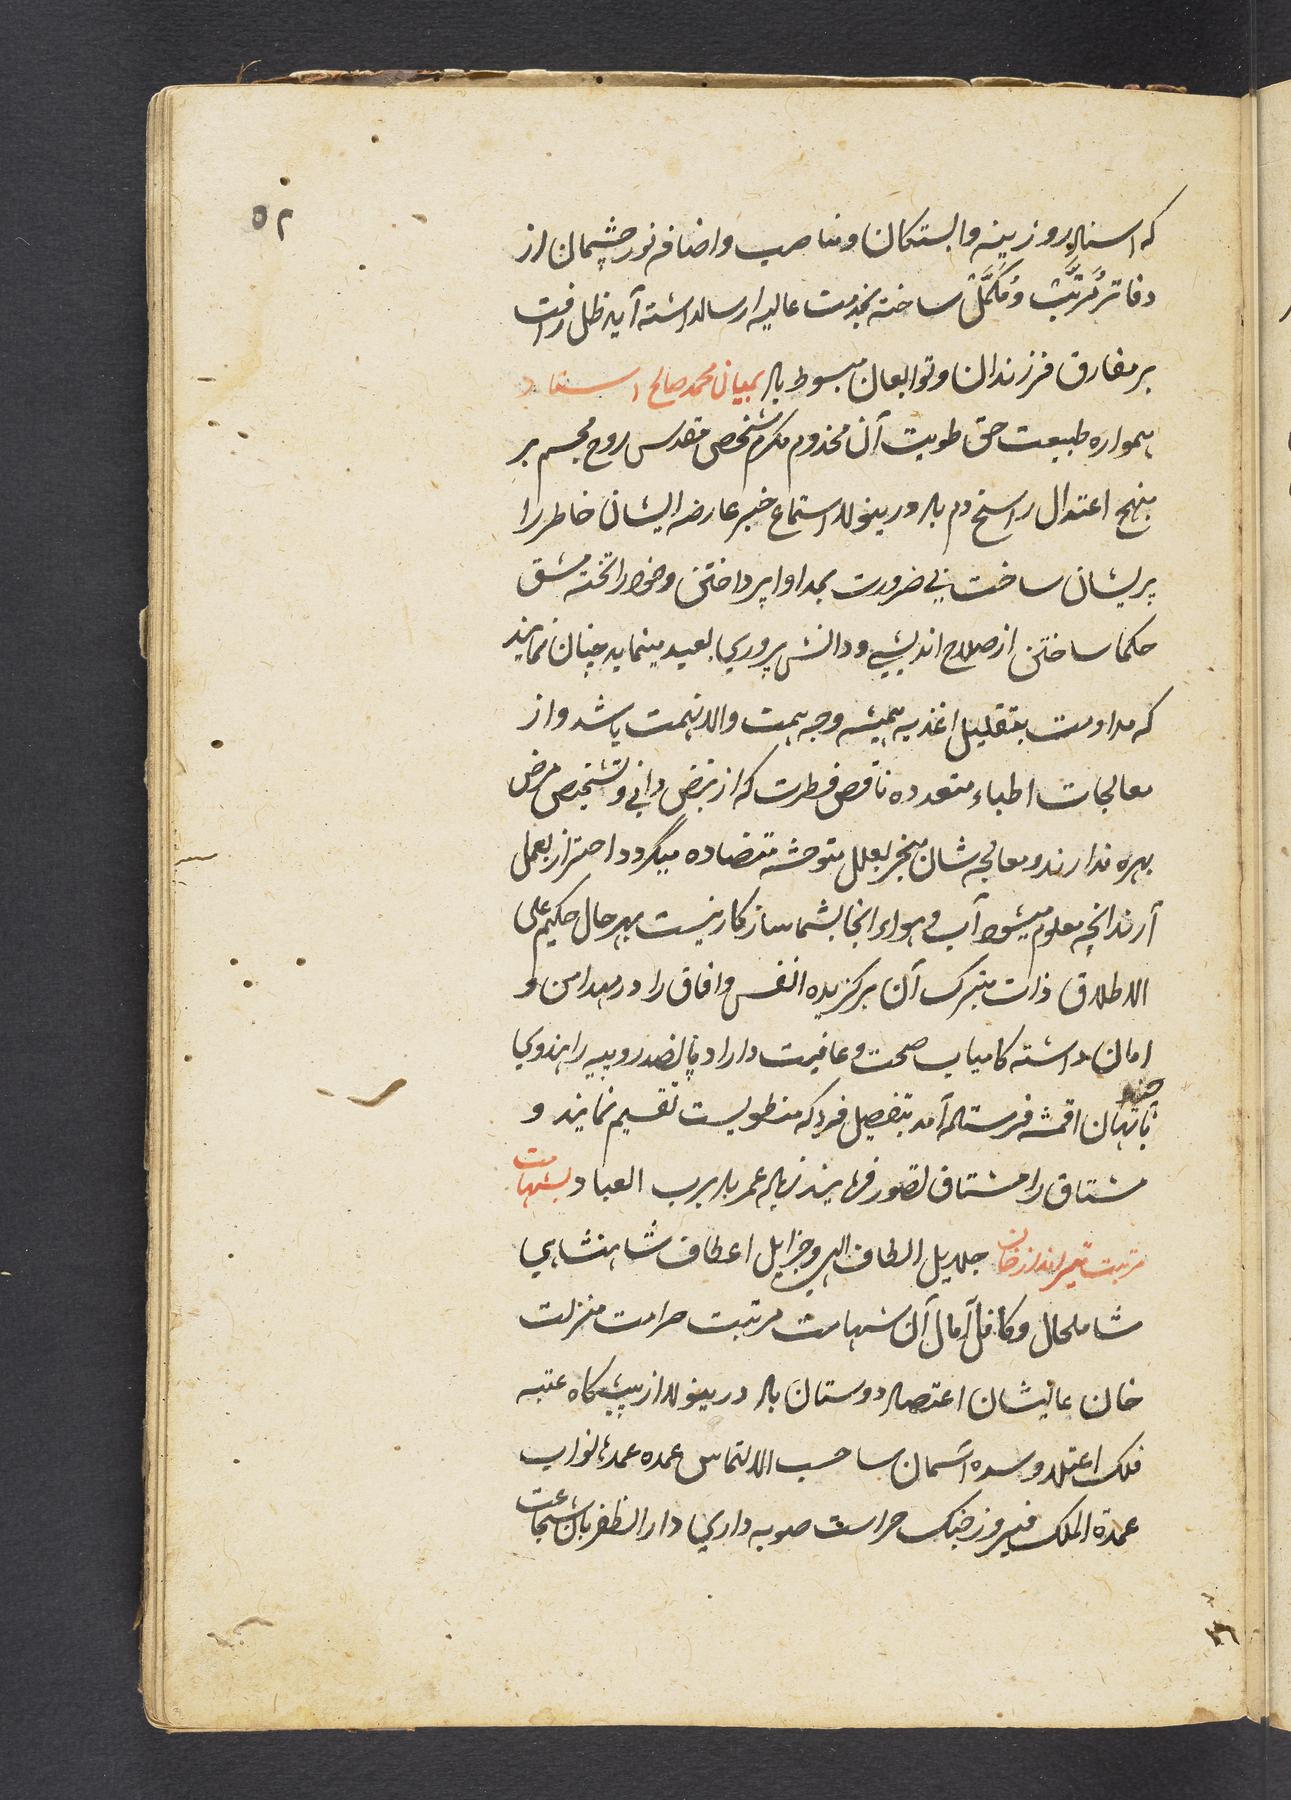 ۵۲
که اسناد روزینه وابستکان و مناصب و اضافه نور چشمان از
دفاتر مُرتَّب و مُکمَّل ساخته بخدمت عالیه ارسالداشته آید ظل رافت
بر مفارق فرزندان و توابعان مبسوط باد بمیان محمد صالح استاد
همواره طبیعت حق طویت آن مخدوم مکرم شخص مقدس روح مجسم بر
منهج اعتدال راسخ دم باد درینولا استماع خبر عارضه ایشان خاطر را
پریشان ساخت بی ضرورت بمداوا پرداختن و خود را تخته مشق
حکما ساختن از صلاح اندیشی و دانش پروری بعید مینماید چنان نمایند
که مداومت بتقلیل اغذیه همیشه وجه همت والا نهمت باشد و از
معالجات اطباء متعدده ناقص فطرت که از نبض دانی و تشخیص مرض
بهره ندارند و معالجه شان منجر بعلل متوحشه متضاده میگردد احتراز بعمل
آرند انچه معلوم میشود آب و هواء انجا بشما سازکار نیست بهر حال حکیم علی
الاطلاق ذات متبرک آن برکزیده انفس و افاق را در مهد امن و
امان داشته کامیاب صحت و عافیت داراد پانصد روپیه را هندوی
با تهان اقمشه فرستاده آمد بتفصیل فرد که منظویست تقسیم نمایند و
مشتاق را مشتاق تصور فرمایند زیاده عمر باد برب العباد بشهامت
مرتبت تیر انداز خان جلایل الطاف الهی و جزایل اعطاف شاهنشاهی
شاملحال و کافل آمال آن شهامت مرتبت صرامت منزلت
خان عالیشان اعتضاد دوستان باد درینولا از پیشکاه عتبه
فلک اعتلا و سده آسمان سا حسب الالتماس عمده عمدها نواب
عمدة الملک فیروز جنک حراست صوبه داری دار الظفر بان شجاعت